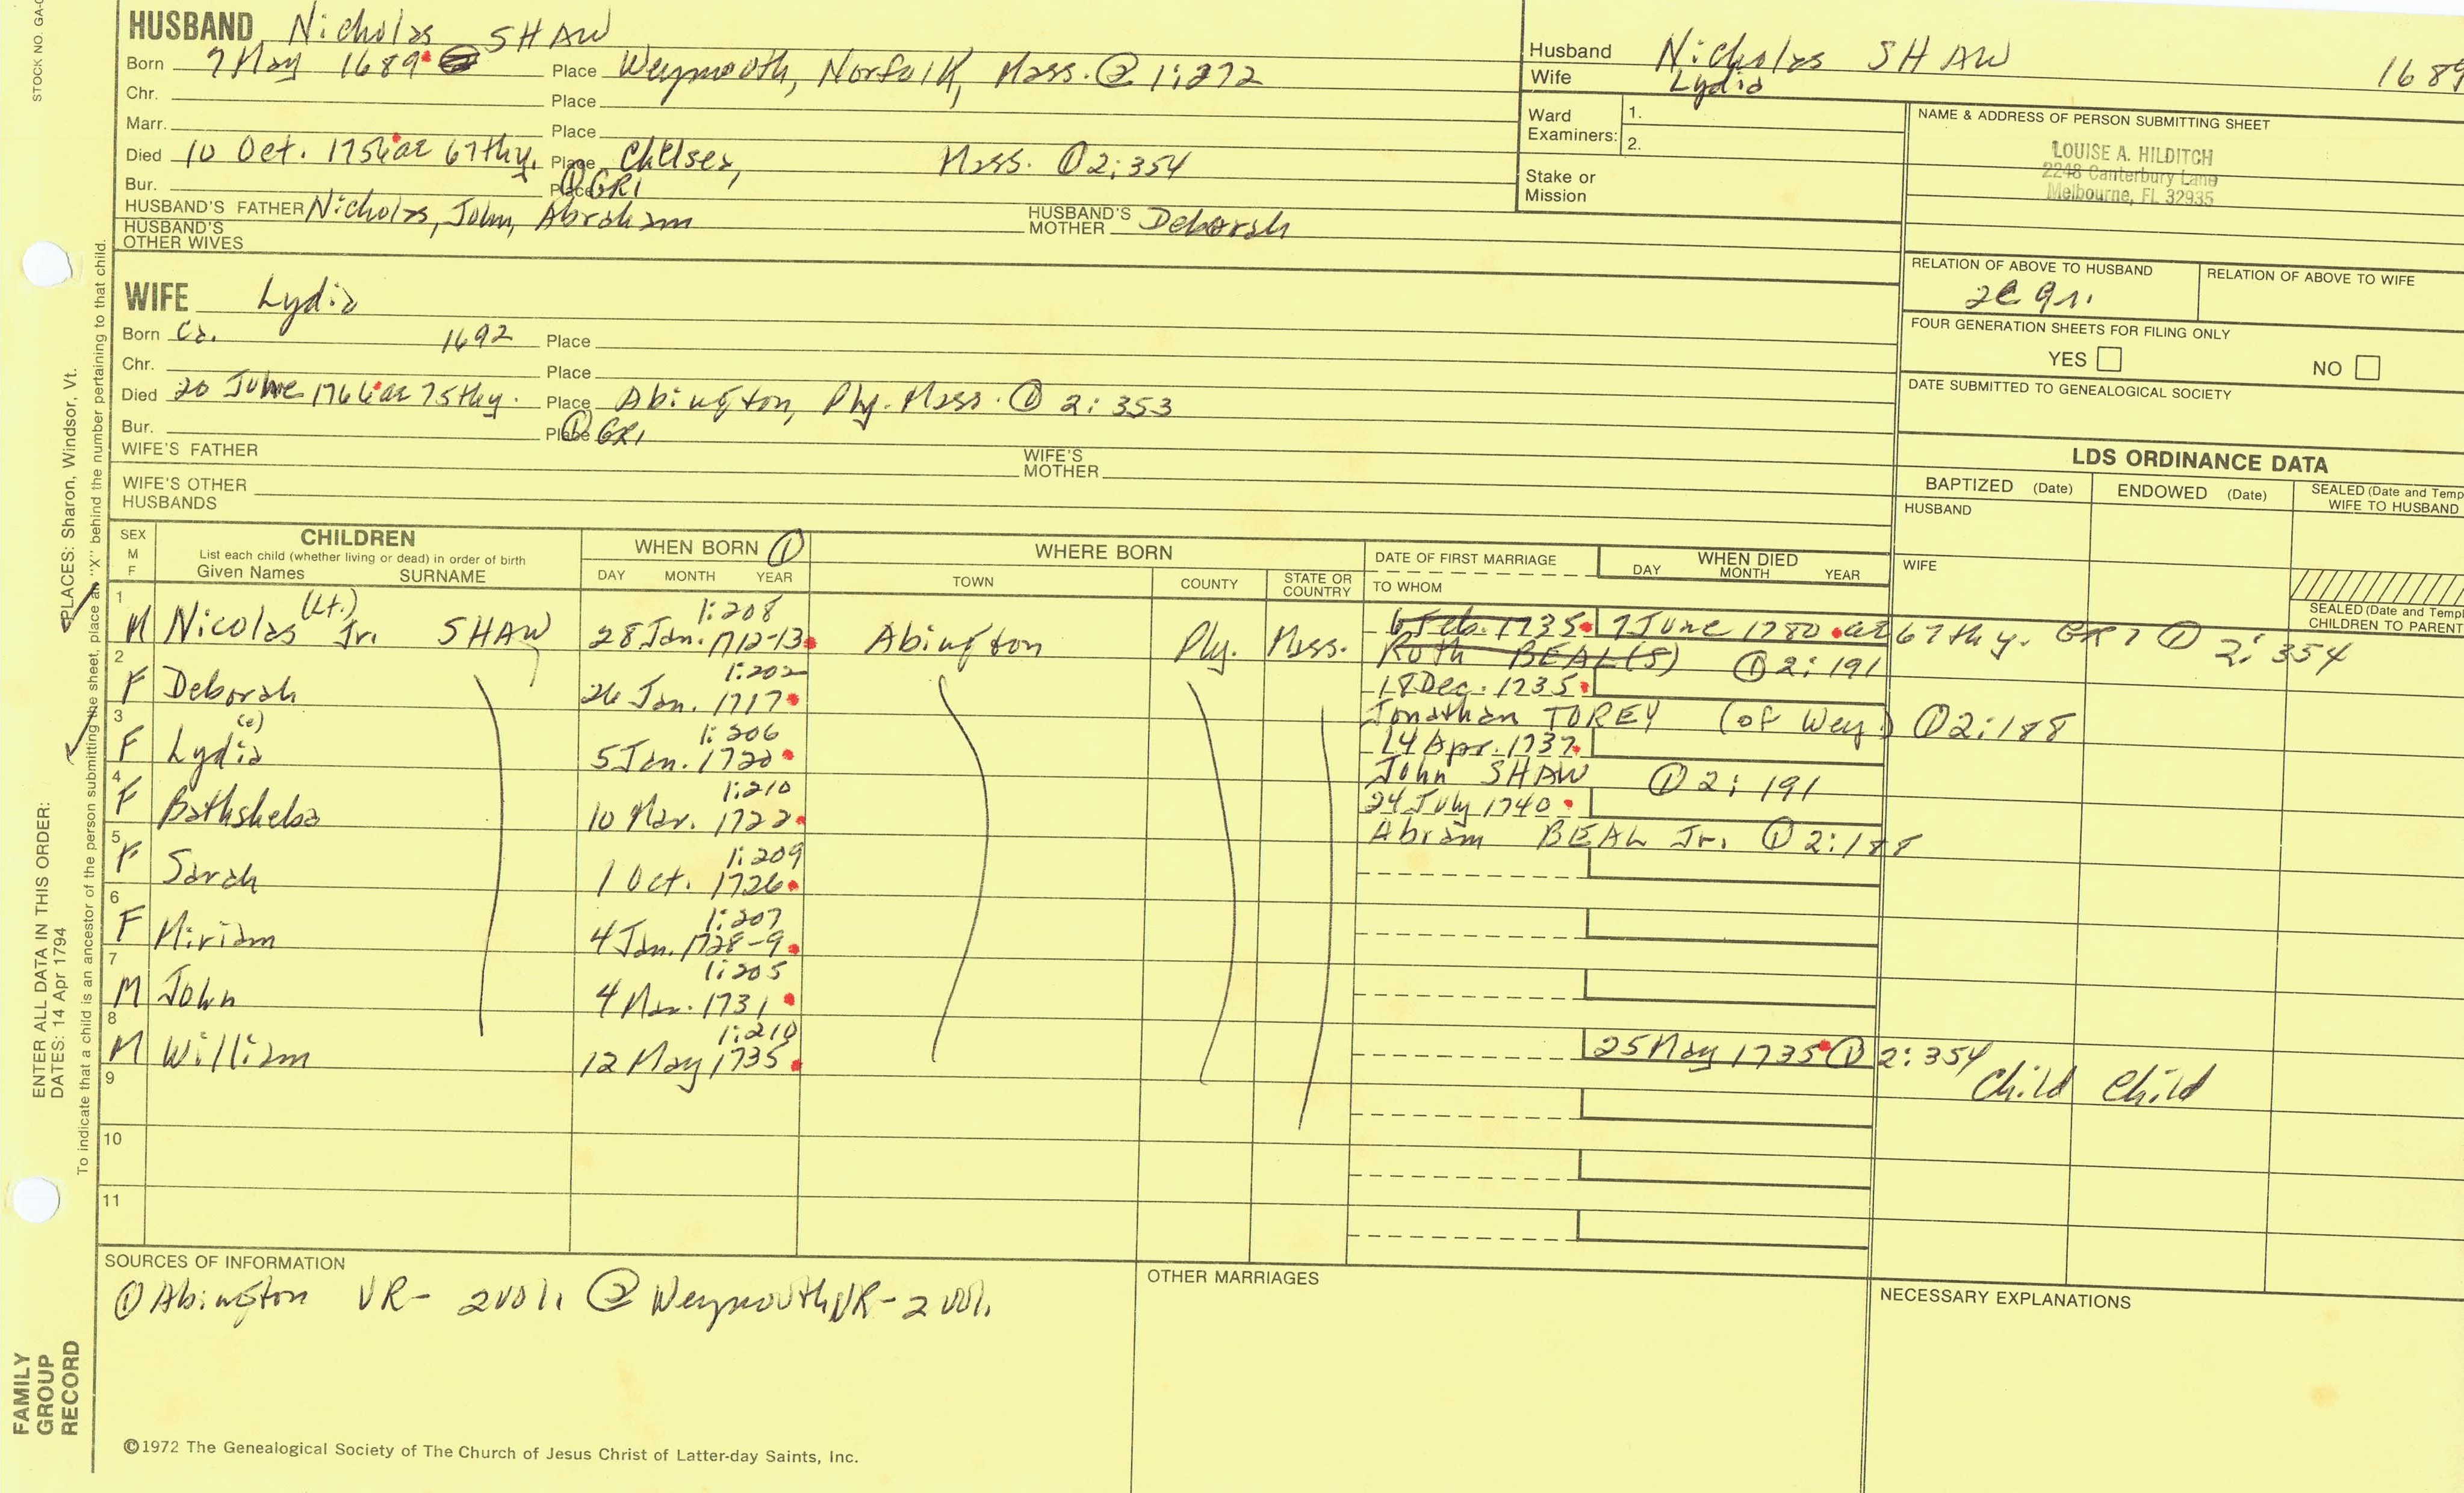 STOCK NO. GA-
HUSBAND Nicholas SHAW
Born 7 May 1689 Place Weymouth, Norfolk, Mass. ② 1:272
Chr. Place
Marr. Place
Died 10 Oct. 1756 ae 67thy. Place Chelsea, Mass. ① 2:354
Bur. Place ① GR1
HUSBAND'S FATHER Nicholas, John, Abraham HUSBAND'S MOTHER Deborah
HUSBAND'S OTHER WIVES
WIFE Lydia
Born Ca. 1692 Place
Chr. Place
Died 20 June 1766 ae 75thy. Place Abington, Ply. Mass. ① 2:353
Bur. Place ① GR1
WIFE'S FATHER WIFE'S MOTHER
WIFE'S OTHER HUSBANDS
Husband Nicholas SHAW 1689
Wife Lydia
Ward Examiners: 1.
2.
Stake or Mission
NAME & ADDRESS OF PERSON SUBMITTING SHEET
LOUISE A. HILDITCH
2248 Canterbury Lane
Melbourne, FL 32935
RELATION OF ABOVE TO HUSBAND RELATION OF ABOVE TO WIFE
FOUR GENERATION SHEETS FOR FILING ONLY
YES NO
DATE SUBMITTED TO GENEALOGICAL SOCIETY
LDS ORDINANCE DATA
BAPTIZED (Date) ENDOWED (Date) SEALED (Date and Temp
WIFE TO HUSBAND
HUSBAND
WIFE
SEALED (Date and Templ
CHILDREN TO PARENT
SEX M F CHILDREN WHEN BORN ① WHERE BORN DATE OF FIRST MARRIAGE WHEN DIED
List each child (whether living or dead) in order of birth
Given Names SURNAME DAY MONTH YEAR TOWN COUNTY STATE OR COUNTRY TO WHOM DAY MONTH YEAR
1 (Lt.) 1:208
M Nicolas Jr. SHAW 28 Jan. 1712-13 Abington Ply. Mass. 6 Feb. 1735 7 June 1780 ae 67thy. GR7 ① 2:354
Ruth BEAL(S) ① 2:191
2 1:202
F Deborah 26 Jan. 1717 18 Dec. 1735
Jonathan TOREY (of Wey.) ① 2:188
3 (e) 1:206
F Lydia 5 Jan. 1720 14 Apr. 1737
John SHAW ① 2:191
4 1:210
F Bathsheba 10 Mar. 1722 24 July 1740
Abram BEAL Jr. ① 2:188
5 1:209
F Sarah 1 Oct. 1726
6 1:207
F Miriam 4 Jan. 1728-9
7 1:205
M John 4 Mar. 1731
8 1:210
M William 12 May 1735 25 May 1735 ① 2:354 Child Child
9
10
11
SOURCES OF INFORMATION
① Abington VR- 2 vol. ② Weymouth VR- 2 vol.
OTHER MARRIAGES
NECESSARY EXPLANATIONS
ENTER ALL DATA IN THIS ORDER:
DATES: 14 Apr 1794
PLACES: Sharon, Windsor, Vt.
To indicate that a child is an ancestor of the person submitting the sheet, place an "X" behind the number pertaining to that child.
FAMILY
GROUP
RECORD
©1972 The Genealogical Society of The Church of Jesus Christ of Latter-day Saints, Inc.